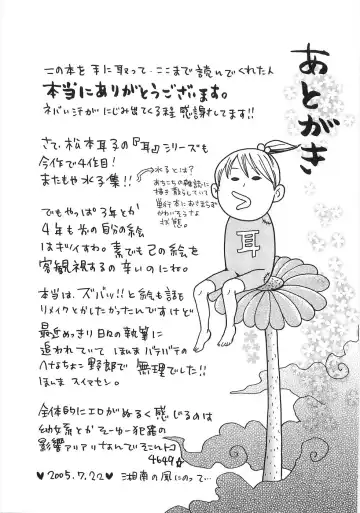 あとがき
この本を手に取って…ここまで読んでくれた人
本当にありがとうございます。
ネバい汗がにじみ出てくる程 感謝してます!!
さて、松本耳子の『耳』シリーズも
今作で4作目!
またもや水る集!!
水るとは?
あちこちの雑誌に
描き散らしていて
単行本におさまらず
かわいそうな
状態。
でもやっぱ3年とか
4年も前の自分の絵
はギツイすわ。素でも己の絵を
客観視するの辛いのにね。
本当は、ズバッ!!と絵も話も
リメイクとかしたかったんですけど
最近めっきり日々の執筆に
追われていて ほんま バテバテの
へなちょこ野郎で 無理でした!!
ほんま スイマセン。
全体的にエロがぬるく感じるのは
幼女系とか そーゆー犯罪の
影響アリアリなんで そこんトコ
4649☆
♥2005.7.22♥ 湘南の風にのって…
耳